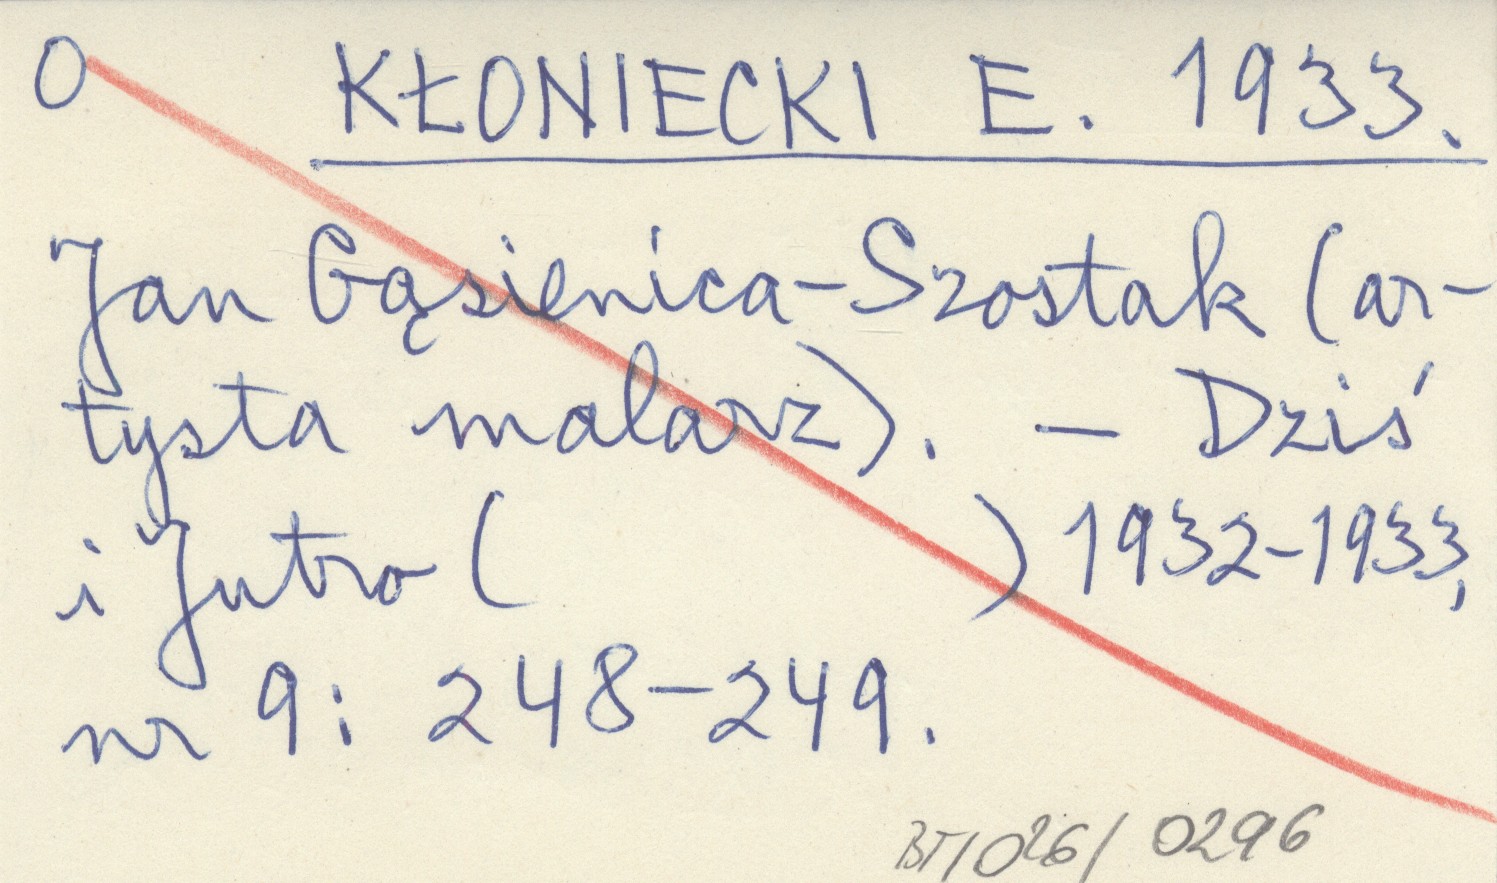 O KŁONIECKI E. 1933.
Jan Gąsienica-Szostak (ar-
tysta malarz). – Dziś
i Jutro (          ) 1932-1933,
nr 9: 248-249.
BT/026/0296